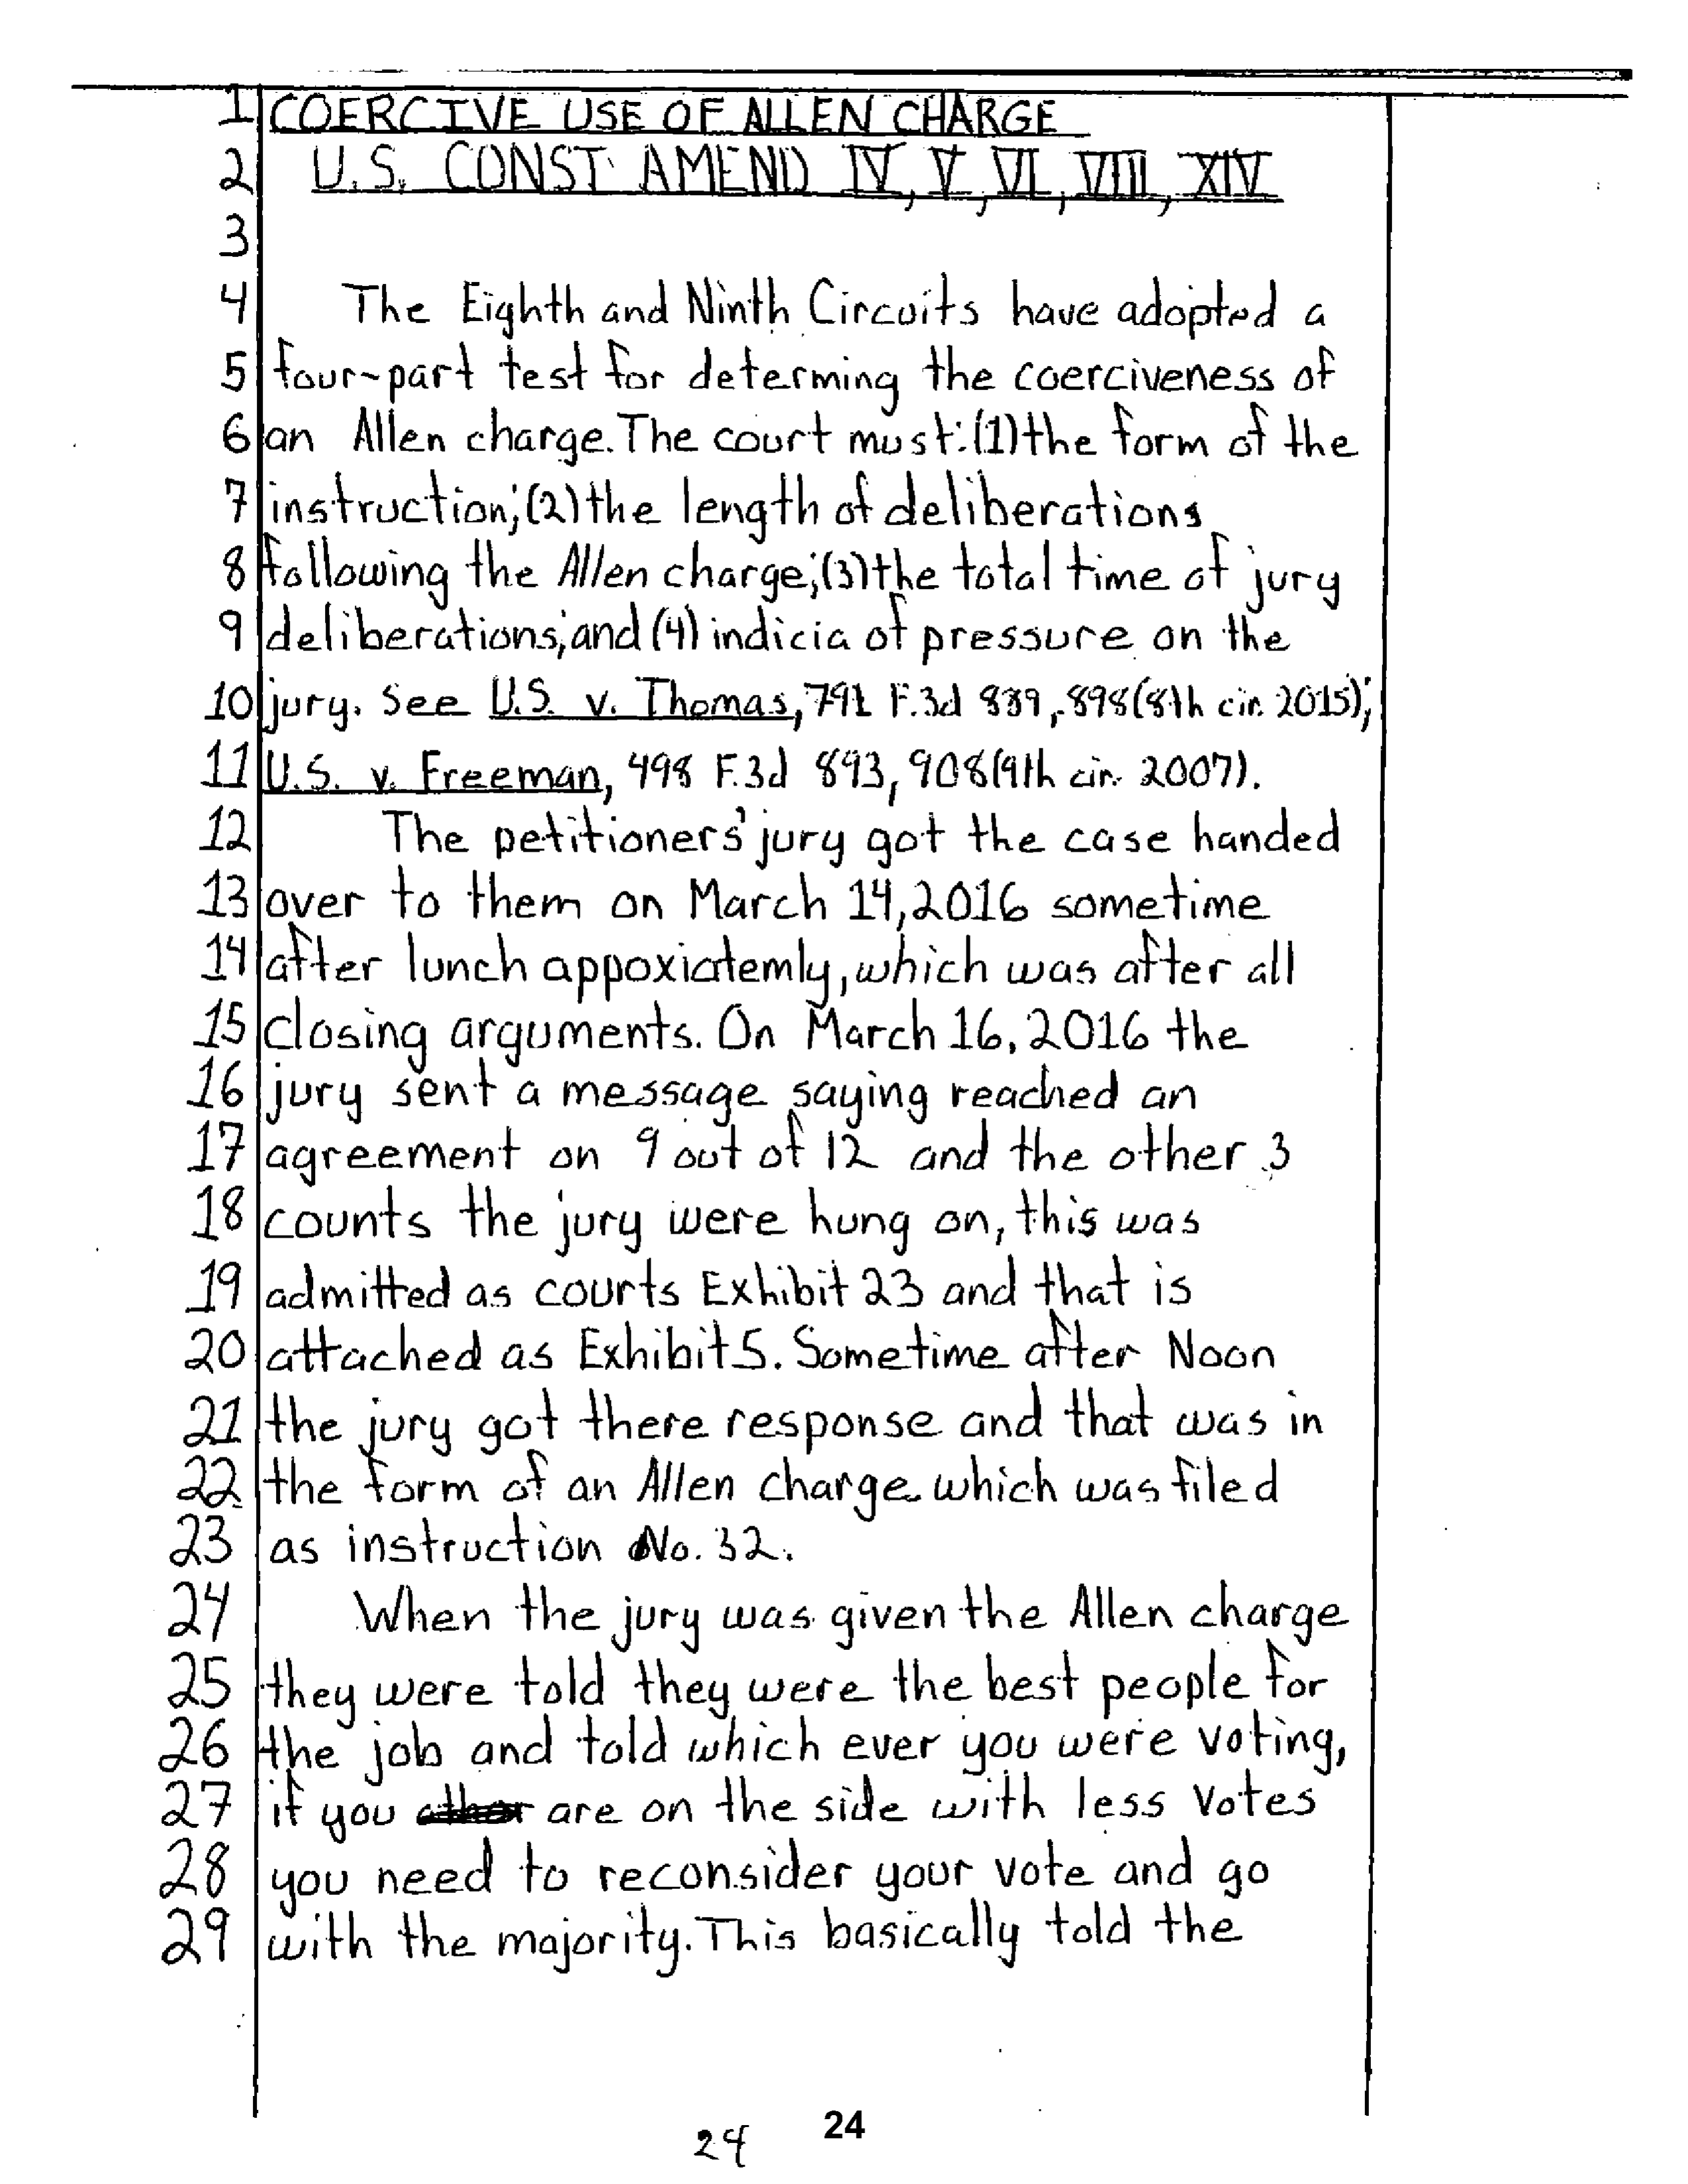 1 COERCIVE USE OF ALLEN CHARGE
2 U.S. CONST AMEND IV, V, VI, VIII, XIV
3
4 The Eighth and Ninth Circuits have adopted a
5 four-part test for determing the coerciveness of
6 an Allen charge. The court must: (1) the form of the
7 instruction; (2) the length of deliberations
8 following the Allen charge; (3) the total time of jury
9 deliberations; and (4) indicia of pressure on the
10 jury. See U.S. v. Thomas, 791 F.3d 889, 898 (8th cir. 2015);
11 U.S. v. Freeman, 498 F.3d 893, 908 (9th cir. 2007).
12 The petitioners' jury got the case handed
13 over to them on March 14, 2016 sometime
14 after lunch appoxiatemly, which was after all
15 closing arguments. On March 16, 2016 the
16 jury sent a message saying reached an
17 agreement on 9 out of 12 and the other 3
18 counts the jury were hung on, this was
19 admitted as courts Exhibit 23 and that is
20 attached as Exhibit 5. Sometime after Noon
21 the jury got there response and that was in
22 the form of an Allen charge which was filed
23 as instruction No. 32.
24 When the jury was given the Allen charge
25 they were told they were the best people for
26 the job and told which ever you were voting,
27 if you are on the side with less votes
28 you need to reconsider your vote and go
29 with the majority. This basically told the
24 24